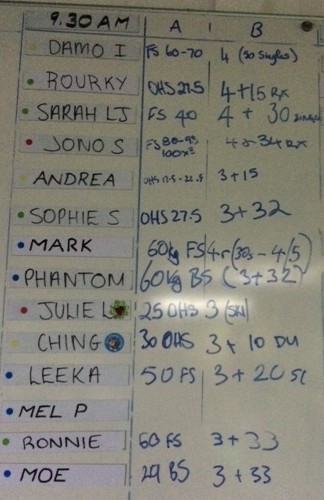 9.30 AM A B
DAMO I FS 60-70 4 (50 Singles)
ROURKY OHS 27.5 4+15 Rx
SARAH LJ FS 40 4 + 30
JONO S FS 80-95 100x2 Rx
ANDREA 3+15
SOPHIE S OHS 27.5 3+32
MARK 60kg FS
PHANTOM 60kg BS (3+32)
JULIE L 25 OHS 3
CHING 30 OHS 3+ 10 DU
LEEKA 50 FS 3+20
MEL P
RONNIE 60 FS 3+33
MOE 29 BS 3+33